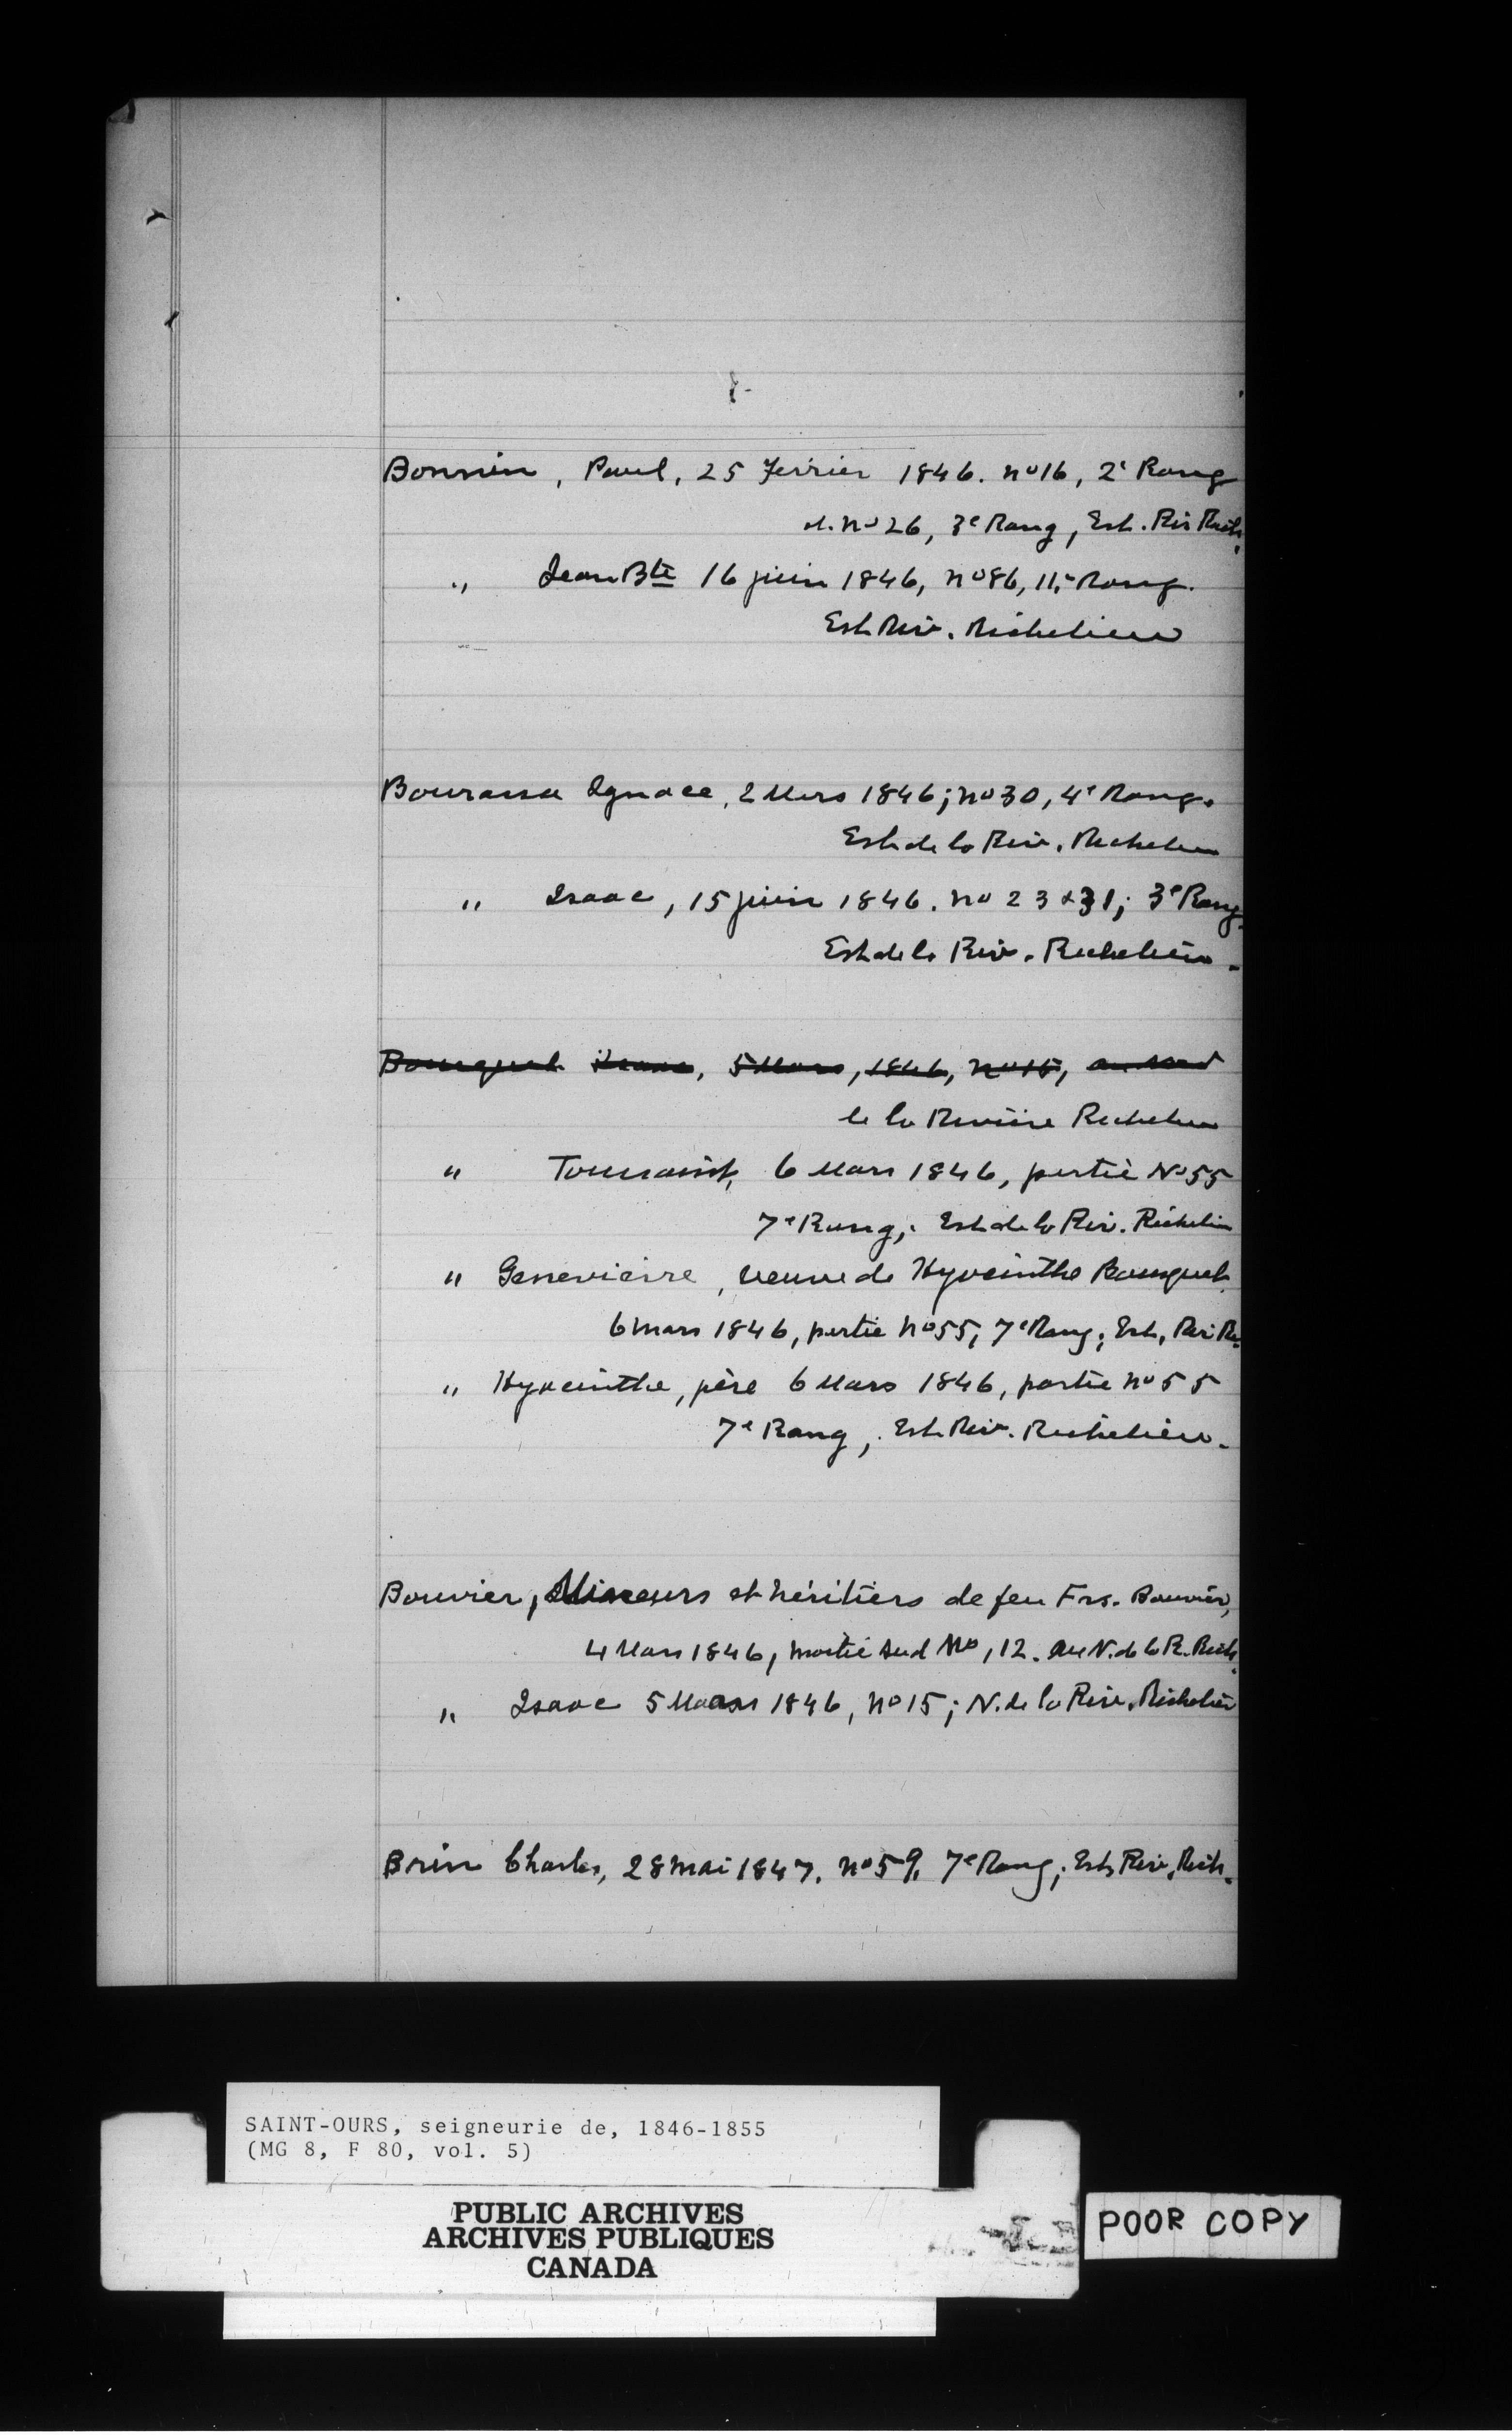 Bonnin, Paul, 25 Fevrier 1846. no 16, 2e Rang
et. no 26, 3e Rang, Est. Riv Rich.
" Jean Bte 16 juin 1846, no 86, 11e Rang.
Est Riv. Richelieu
Bourassa Ignace, 2 Mars 1846; no 30, 4e Rang.
Est de la Riv. Richelieu
" Isaac, 15 juin 1846. no 23 & 31; 3e Rang.
Est de la Riv. Richelieu.
Bousquet Isaac, 5 Mars, 1846, no 15, au Nord
de la Rivière Richelieu
" Toussaint, 6 Mars 1846, partie No 55
7e Rang; Est de la Riv. Richelieu
" Genevieve, veuve de Hyacinthe Bousquet.
6 mars 1846, partie no 55, 7e Rang; Est, Riv Ri.
" Hyacinthe, père 6 Mars 1846, partie no 55
7e Rang, Est Riv. Richelieu.
Bouvier, Mineurs et héritiers de feu Frs. Bouvier,
4 Mars 1846, moitié sud No, 12. au N. de la R. Rich.
" Isaac 5 Mars 1846, no 15; N. de la Riv. Richelieu
Brin Charles, 28 mai 1847. no 59, 7e Rang; Est, Riv. Rich.
SAINT-OURS, seigneurie de, 1846-1855
(MG 8, F 80, vol. 5)
PUBLIC ARCHIVES
ARCHIVES PUBLIQUES
CANADA
POOR COPY